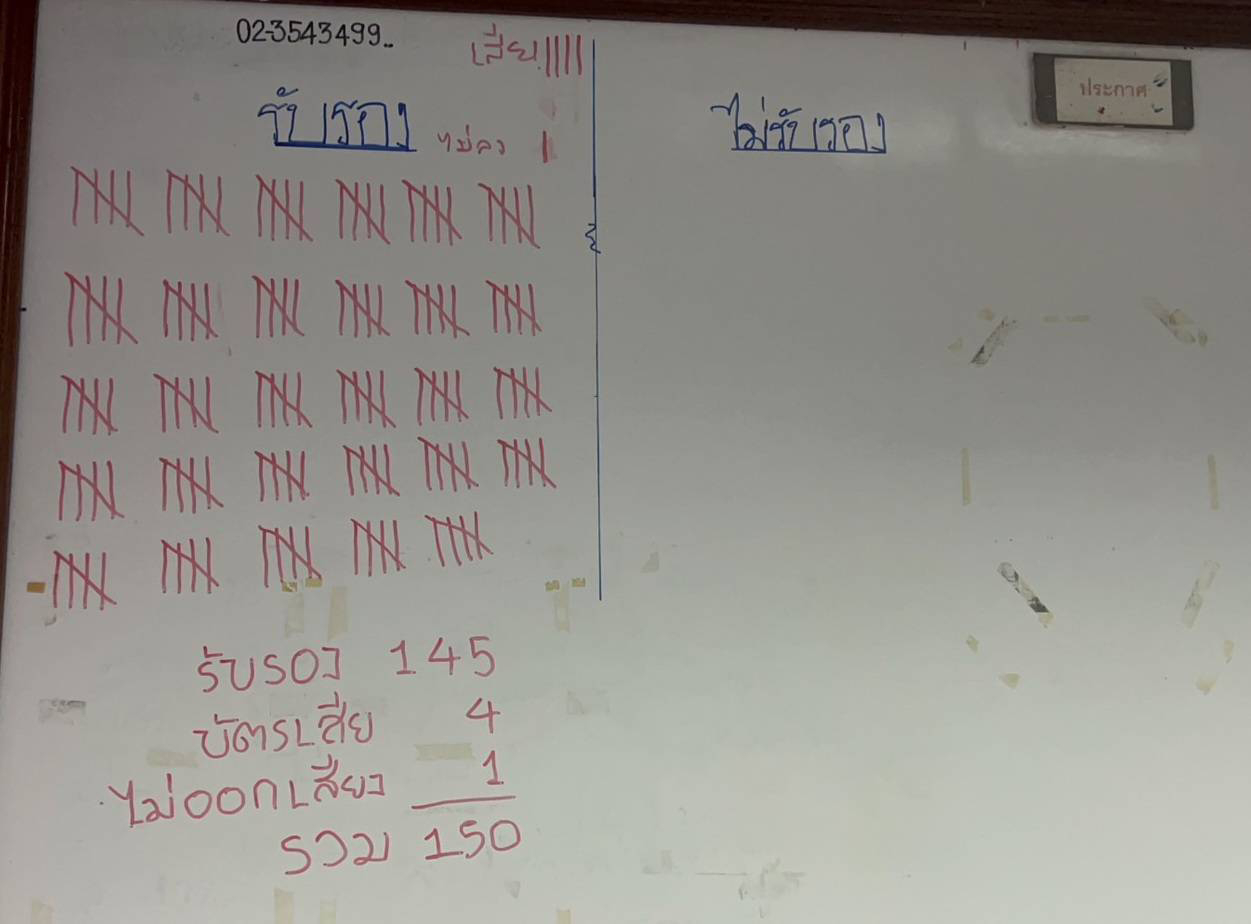 02-3543499..
เสีย ||||
ประกาศ
รับรอง
ไม่ลง |
ไม่รับรอง
รับรอง 145
บัตรเสีย 4
ไม่ออกเสียง 1
รวม 150